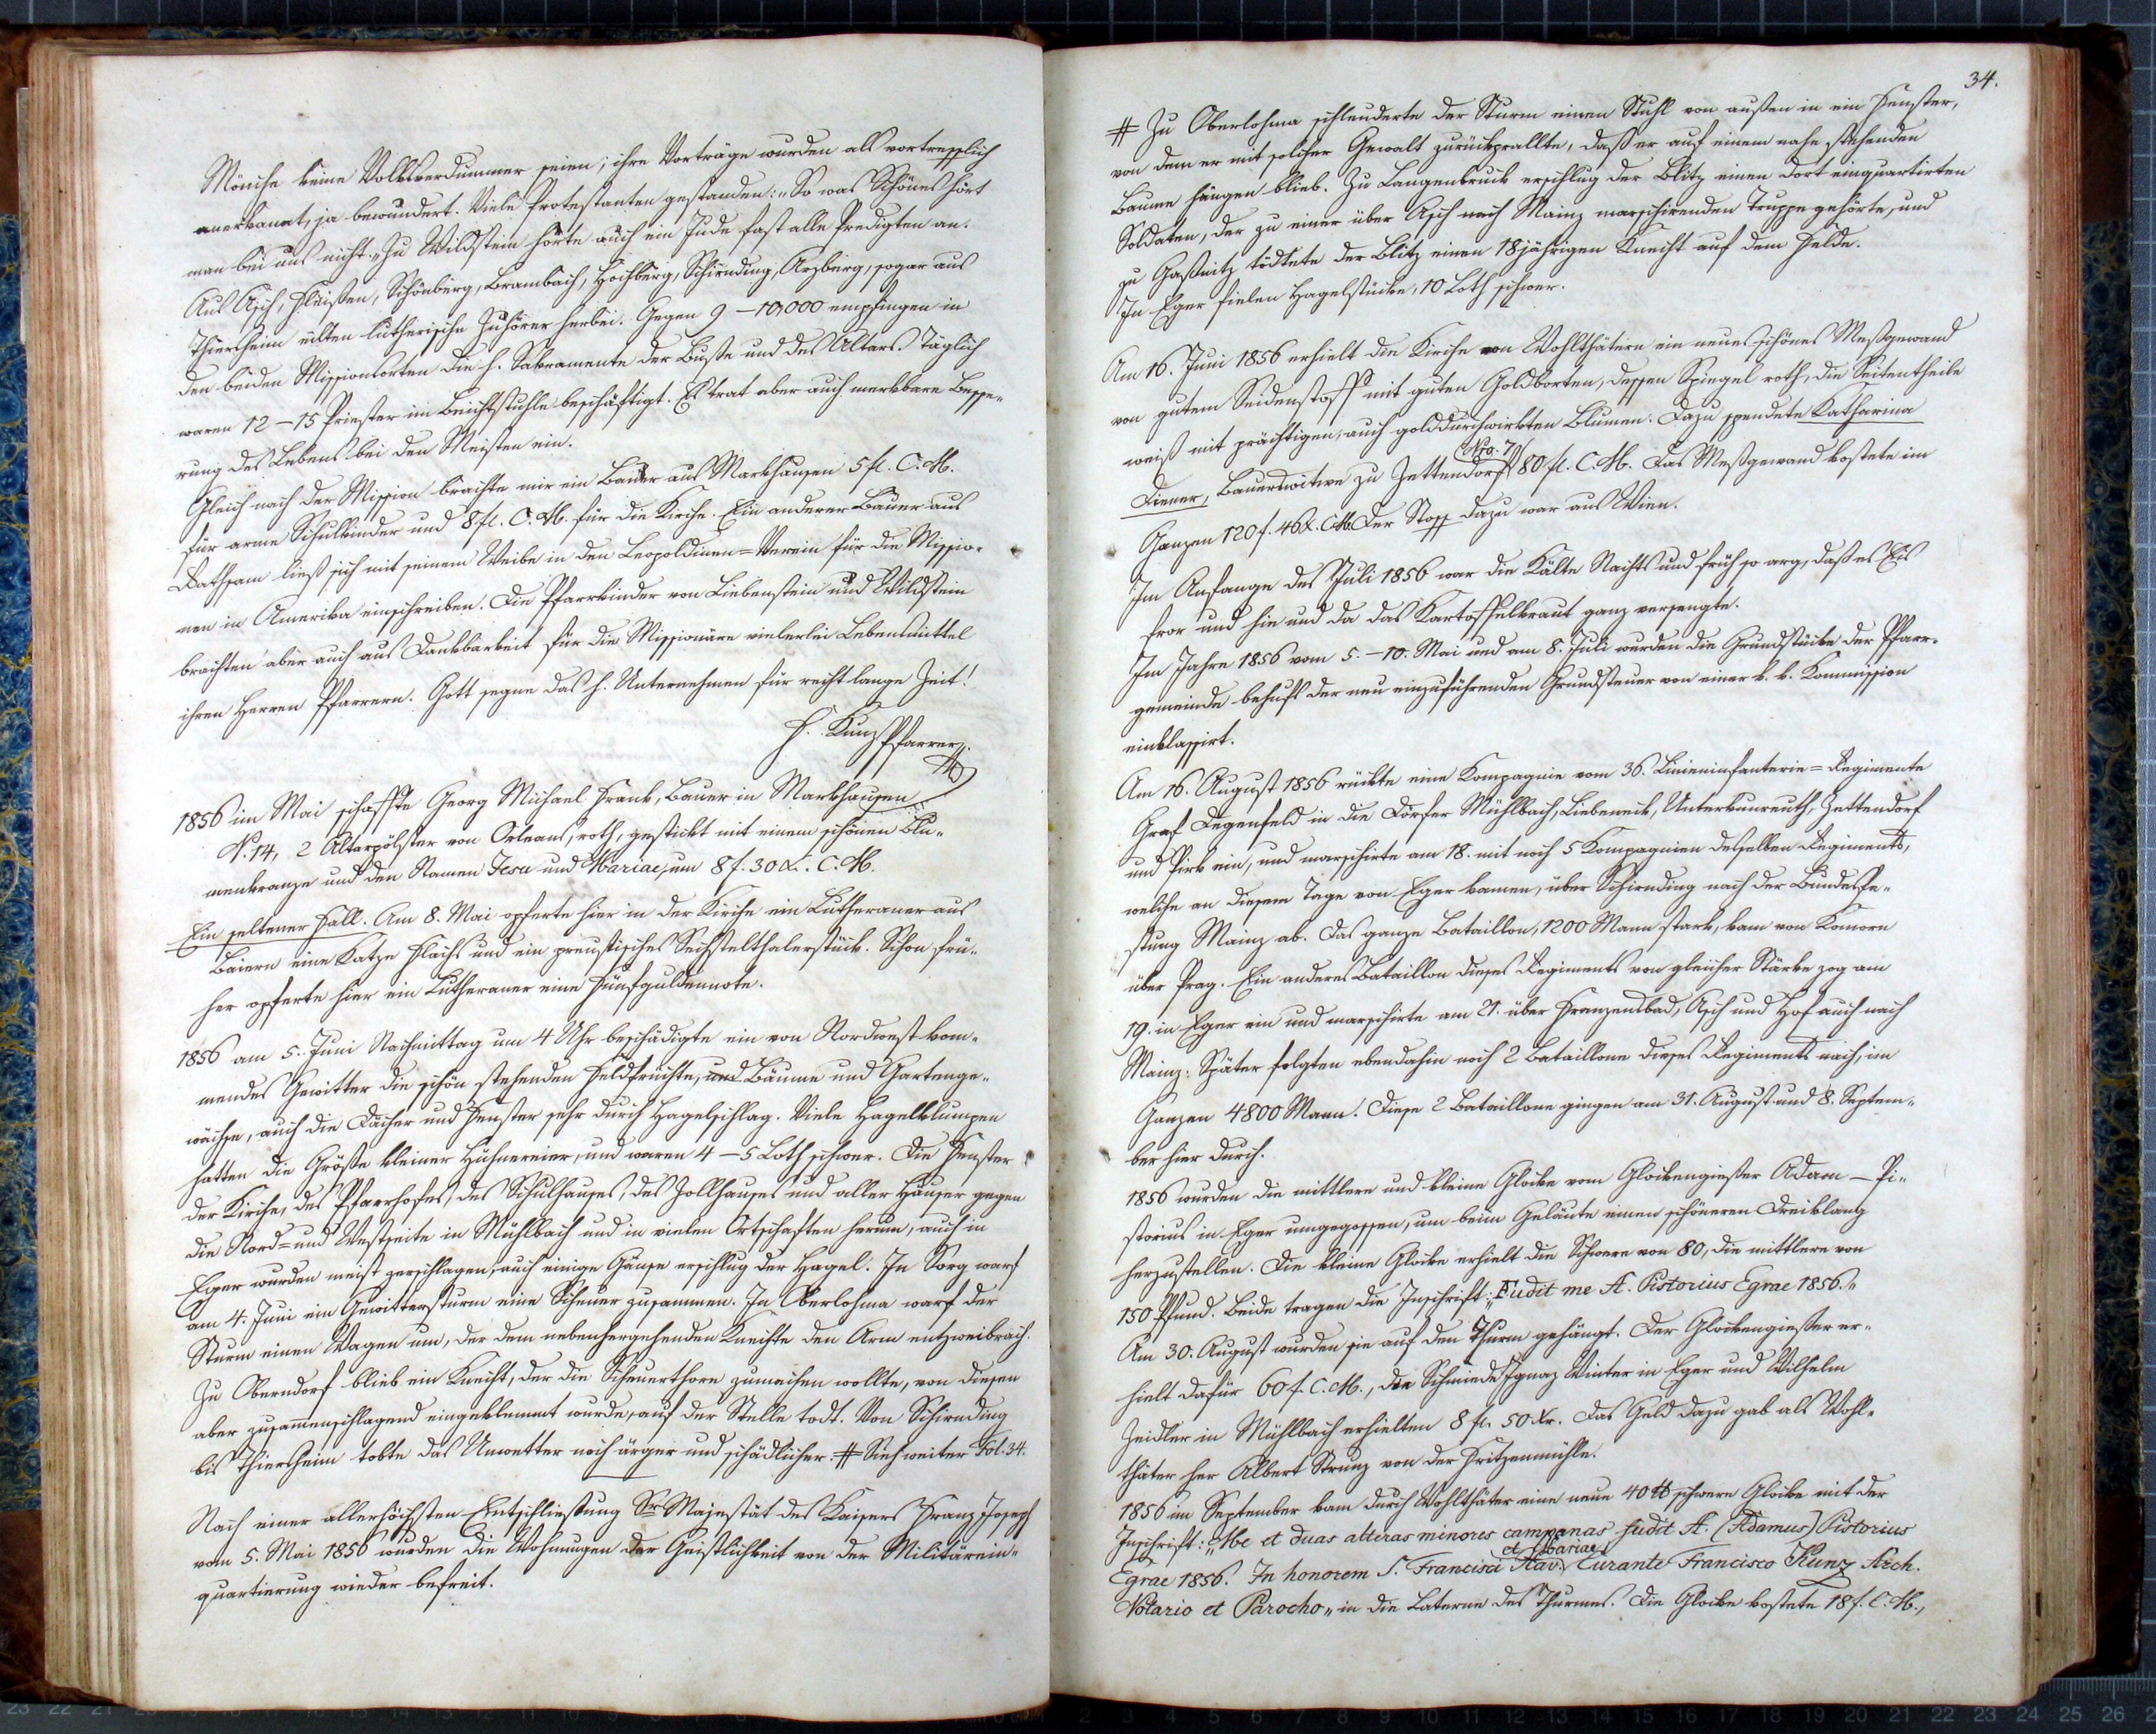 Mönche keine Volksverdummer seien; ihre Vorträge wurden als vortrefflich
anerkannt, ja bewundert. Viele Protestanten gestanden: „So was Schönes hört
man bei uns nicht.„ Zu Wildstein hörte auch ein Jude fast alle Predigten an.
Aus Asch, Fleißen, Schönberg, Brambach, Hochberg, Schirnding, Arzberg, sogar aus
Thiersheim eilten lutherische Zuhörer herbei. Gegen 9 – 10,000 empfingen in
den beiden Missionsorten die h. Sakramente der Buße und des Altars. Täglich
waren 12 – 15 Priester im Beichtstuhle beschäftigt. Es trat aber auch merkbare Besse„
rung des Lebens bei den Meisten ein.
Gleich nach der Mission brachte mir ein Bauer aus Markhausen 5 fl. C. M.
für arme Schulkinder und 8 fl. C. M. für die Kirche. Ein anderer Bauer aus
Rathsam ließ sich mit seinem Weibe in den Leopoldinen=Verein für die Missio„
nen in Amerika einschreiben. Die Pfarrkinder von Liebenstein und Wildstein
brachten aber auch aus Dankbarkeit für die Missionäre vielerlei Lebensmittel
ihren Herren Pfarrern. Gott segne das h. Unternehmen für recht lange Zeit!
F. Kunz Pfarrer
1856 im Mai schaffte Georg Michael Frank, Bauer in Markhausen
N. 14, 2 Altarpölster von Orleans, roth, gestickt mit einem schönen Blu„
menkranze und den Namen Jesu und Mariae, um 8 f. 30 x. C. M.
Ein seltener Fall. Am 8. Mai opferte hier in der Kirche ein Lutheraner aus
Baiern eine Katze Flachs und ein preußisches Sechstelthalerstück. Schon frü„
her opferte hier ein Lutheraner eine Fünfguldennote.
1856 am 5. Juni Nachmittag um 4 Uhr beschädigte ein von Nordwest kom„
mendes Gewitter die schön stehenden Feldfrüchte, und Bäume und Gartenge„
wächse, auch die Dächer und Fenster sehr durch Hagelschlag. Viele Hagelklumpen
hatten die Größe kleiner Hühnereier, und waren 4 – 5 Loth schwer. Die Fenster
der Kirche, des Pfarrhofes, des Schulhauses, des Zollhauses und aller Häuser gegen
die Nord= und Westseite in Mühlbach und in vielen Ortschaften herum, auch in
Eger wurden meist zerschlagen, auch einige Gänse erschlug der Hagel. In Sorg warf
am 4. Juni ein Gewittersturm eine Scheuer zusammen. In Oberlohma warf der
Sturm einen Wagen um, der dem nebenhergehenden Knechte den Arm entzweibrach.
Zu Oberndorf blieb ein Knecht, der die Scheuerthore zumachen wollte, von diesen
aber zusammenschlagend eingeklemmt wurde, auf der Stelle todt. Von Schirnding
bis Thiersheim tobte das Unwetter noch ärger und schädlicher. # Sieh weiter Fol. 34.
Nach einer allerhöchsten Entschließung Sr Majestät des Kaisers Franz Joseph
vom 5. Mai 1856 wurden die Wohnungen der Geistlichkeit von der Militärein„
quartierung wieder befreit.
34.
# Zu Oberlohma schleuderte der Sturm einen Stuhl von außen in ein Fenster,
von dem er mit solcher Gewalt zurückprallte, daß er auf einem nahe stehenden
Baume hängen blieb. Zu Langenbruck erschlug der Blitz einen dort einquartirten
Soldaten, der zu einer über Asch nach Mainz marschirenden Truppe gehörte, und
zu Gaßnitz tödtete der Blitz einen 18jährigen Knecht auf dem Felde.
In Eger fielen Hagelstücke, 10 Loth schwer.
Am 16. Juni 1856 erhielt die Kirche von Wohlthätern ein neues schönes Meßgewand
von gutem Seidenstoff mit guten Goldborten, dessen Spiegel roth, die Seitentheile
weiß mit prächtigen, auch golddurchwirkten Blumen. Dazu spendete Katharina
Diener, Bauerswitwe zu Zettendorf Nro. 7 80 fl. C. M. Das Meßgewand kostete im
Ganzen 120 f. 46 x. CM. Der Stoff dazu war aus Wien.
Im Anfange des Juli 1856 war die Kälte Nachts und früh so arg, daß es Eis
fror und hie und da das Kartoffelkraut ganz versengte.
Im Jahre 1856 vom 5. – 10. Mai und am 8. Juli wurden die Grundstücke der Pfarr„
gemeinde behufs der neu einzuführenden Grundsteuer von einer k. k. Kommission
einklassirt.
Am 16. August 1856 rückte eine Kompagnie vom 36. Linieninfanterie=Regimente
Graf Degenfeld in die Dörfer Mühlbach, Liebeneck, Unterkunreuth, Zettendorf
und Pirk ein, und marschirte am 18. mit noch 5 Kompagnien desselben Regiments,
welche an diesem Tage von Eger kamen, über Schirnding nach der Bundesfe„
stung Mainz ab. Das ganze Bataillon, 1200 Mann stark, kam von Komorn
über Prag. Ein anderes Bataillon dieses Regiments von gleicher Stärke zog am
19. in Eger ein und marschirte am 21. über Franzensbad, Asch und Hof auch nach
Mainz. Später folgten ebendahin noch 2 Bataillone dieses Regiments nach, im
Ganzen 4800 Mann. Diese 2 Bataillone gingen am 31. August und 8. Septem„
ber hier durch.
1856 wurden die mittlere und kleine Glocke vom Glockengießer Adam – Pi„
storius in Eger umgegossen, um beim Geläute einen schöneren Dreiklang
herzustellen. Die kleine Glocke erhielt die Schwere von 80, die mittlere von
150 Pfund. Beide tragen die Inschrift: „Fudit me A. Pistorius Egrae 1856.„
Am 30. August wurden sie auf den Thurm gehängt. Der Glockengießer er„
hielt dafür 60 f. C. M., die Schmiede Ignaz Winter in Eger und Wilhelm
Zeidler in Mühlbach erhielten 8 fl. 50 xr. Das Geld dazu gab als Wohl„
thäter her Albert Strunz von der Fritzenmühle.
1856 im September kam durch Wohlthäter eine neue 40 ℔ schwere Glocke mit der
Inschrift: „Me et duas alteras minores campanas fudit A. (Adamus) Pistorius
Egrae 1856. In honorem S. Francisci Xav. et Mariae Curante Francisco Kunz Arch.
Notario et Parocho„ in die Laterne des Thurmes. Die Glocke kostete 18 f. C. M.,